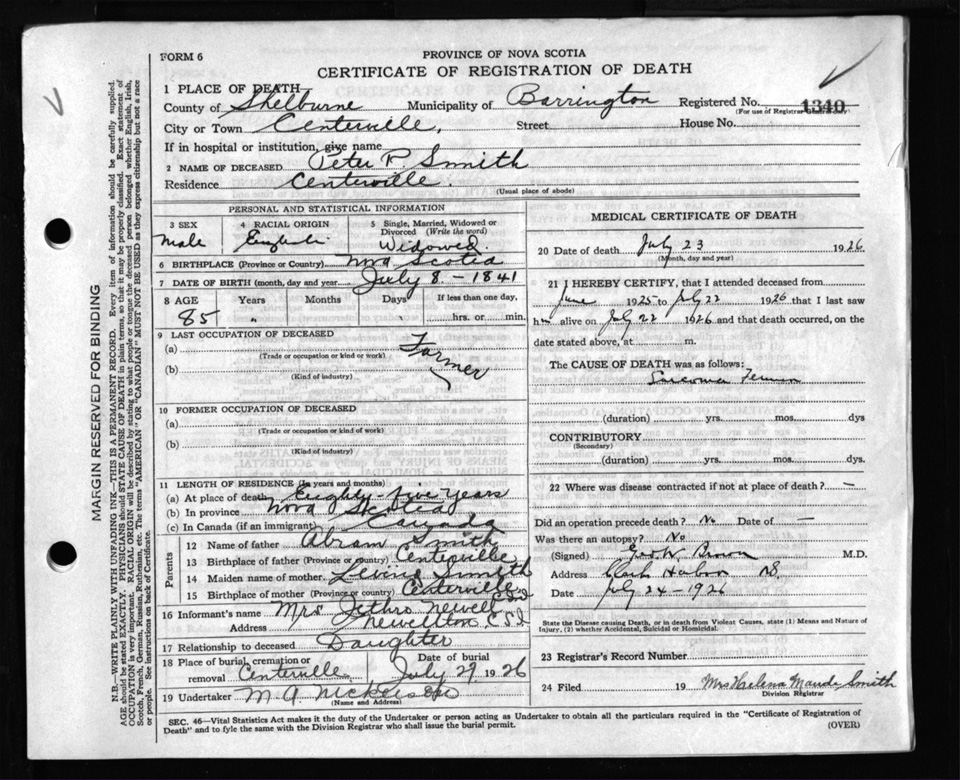 PROVINCE OF NOVA SCOTIA
FORM 6
CERTIFICATE OF REGISTRATION OF DEATH
1 PLACE OF DEATH
County of Shelburne Municipality of Barrington Registered No. 1340
(For use of Registrar General only)
City or Town Centerville, Street House No.
If in hospital or institution, give name
2 NAME OF DECEASED Peter P. Smith
Residence Centerville.
(Usual place of abode)
PERSONAL AND STATISTICAL INFORMATION
3 SEX 4 RACIAL ORIGIN 5 Single, Married, Widowed or Divorced (Write the word)
Male English Widowed.
6 BIRTHPLACE (Province or Country) Nova Scotia
7 DATE OF BIRTH (month, day and year) July 8 - 1841
8 AGE Years Months Days If less than one day,
85 " hrs. or min.
9 LAST OCCUPATION OF DECEASED
(a) Farmer
(Trade or occupation or kind or work)
(b)
(Kind of industry)
10 FORMER OCCUPATION OF DECEASED
(a)
(Trade or occupation or kind or work)
(b)
(Kind of industry)
11 LENGTH OF RESIDENCE (In years and months)
(a) At place of death Eighty-five Years
(b) In province Nova Scotia
(c) In Canada (if an immigrant) Canada
Parents
12 Name of father Abram Smith
13 Birthplace of father (Province or country) Centerville
14 Maiden name of mother Levina Smith
15 Birthplace of mother (Province or country) Centerville C.S.I.
16 Informant's name Mrs Jethro Newell
Address Newellton C.S.I.
17 Relationship to deceased Daughter
18 Place of burial, cremation or removal Centerville Date of burial July 27 1926
19 Undertaker M. A. Nickerson
(Name and Address)
MEDICAL CERTIFICATE OF DEATH
20 Date of death July 23 1926
(Month, day and year)
21 I HEREBY CERTIFY, that I attended deceased from
June 1925 to July 22 1926 that I last saw
him alive on July 22 1926 and that death occurred, on
date stated above, at m.
The CAUSE OF DEATH was as follows:
Sarcoma Femur
(duration) yrs. mos. dys
CONTRIBUTORY
(Secondary)
(duration) yrs. mos. dys
22 Where was disease contracted if not at place of death? —
Did an operation precede death? No Date of —
Was there an autopsy? No
(Signed) Geo W Brown M.D.
Address Clark Harbor NS.
Date July 24 - 1926
State the Disease causing Death, or in death from Violent Causes, state (1) Means and Nature of Injury, (2) whether Accidental, Suicidal or Homicidal.
23 Registrar's Record Number
24 Filed 19 Mrs Helena Maude Smith
Division Registrar
SEC. 46—Vital Statistics Act makes it the duty of the Undertaker or person acting as Undertaker to obtain all the particulars required in the "Certificate of Registration of
Death" and to fyle the same with the Division Registrar who shall issue the burial permit. (OVER)
MARGIN RESERVED FOR BINDING
N.B.—WRITE PLAINLY WITH UNFADING INK—THIS IS A PERMANENT RECORD. Every item of information should be carefully supplied.
AGE should be stated EXACTLY. PHYSICIANS should STATE CAUSE OF DEATH in plain terms, so that it may be properly classified. Exact statement of
OCCUPATION is very important. RACIAL ORIGIN will be described by stating to what people or tongue the deceased person belonged whether English, Irish,
Scotch, French, German, Russian, Ruthenian, etc. The terms "AMERICAN" OR "CANADIAN" MUST NOT BE USED as they express citizenship but not a race
or people. See instructions on back of Certificate.